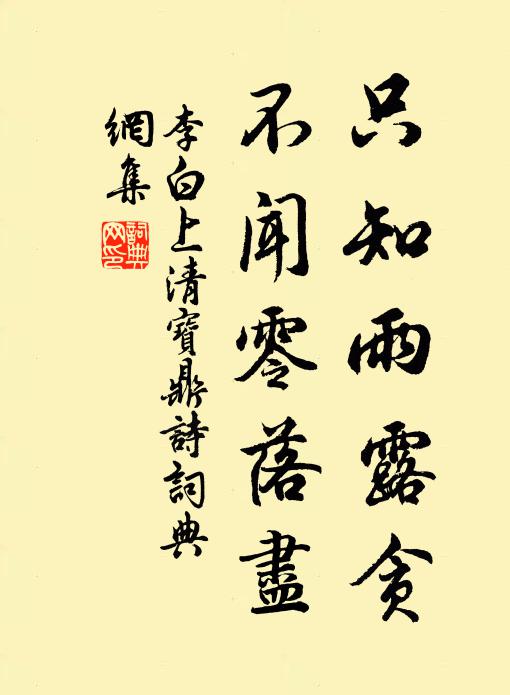 只知雨露貪
不聞零落盡
李白上清寶鼎詩詞典
網集
詞典
网印